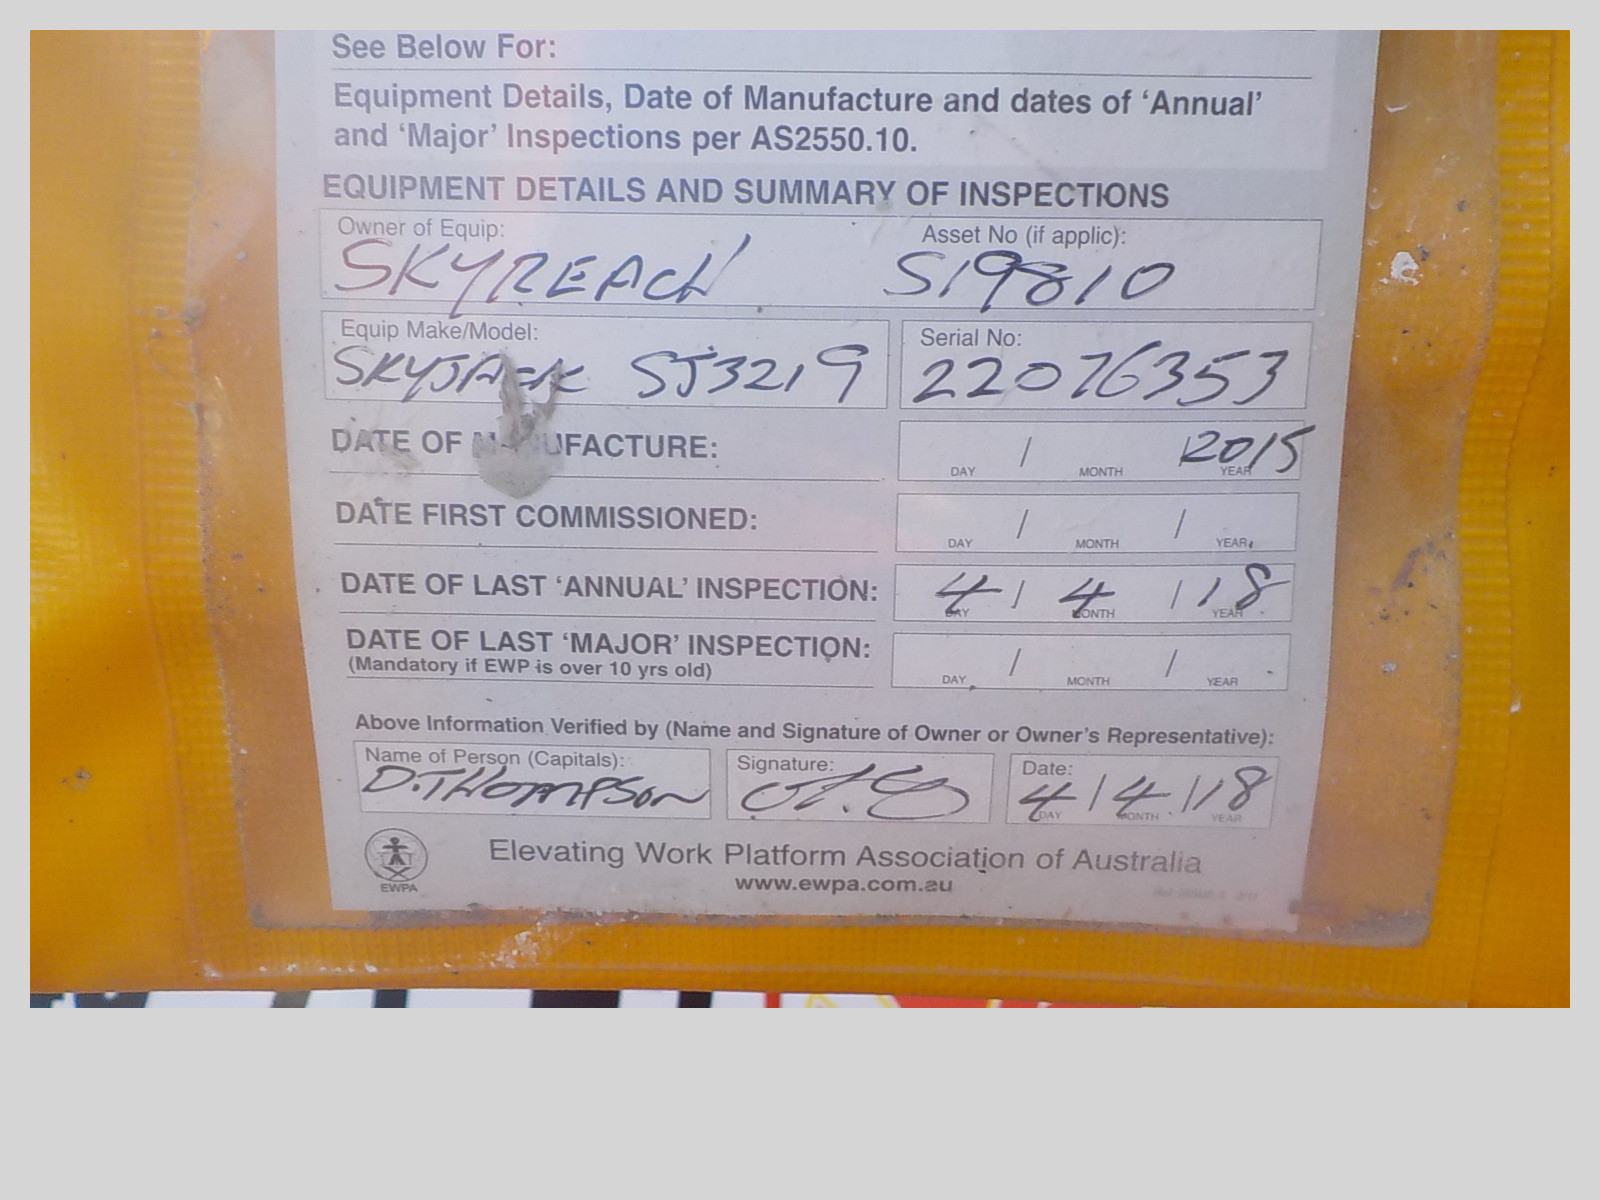 See Below For:
Equipment Details, Date of Manufacture and dates of 'Annual'
and 'Major' Inspections per AS2550.10.
EQUIPMENT DETAILS AND SUMMARY OF INSPECTIONS
Owner of Equip: Asset No (if applic):
SKYREACH S19810
Equip Make/Model: Serial No:
SKYJACK SJ3219 22076353
DATE OF MANUFACTURE: / 2015
DAY MONTH YEAR
DATE FIRST COMMISSIONED: / /
DAY MONTH YEAR
DATE OF LAST 'ANNUAL' INSPECTION: 4 / 4 / 18
DAY MONTH YEAR
DATE OF LAST 'MAJOR' INSPECTION: / /
(Mandatory if EWP is over 10 yrs old)
DAY MONTH YEAR
Above Information Verified by (Name and Signature of Owner or Owner's Representative):
Name of Person (Capitals): Signature: Date:
D.THOMPSON 4 / 4 / 18
DAY MONTH YEAR
Elevating Work Platform Association of Australia
EWPA www.ewpa.com.au